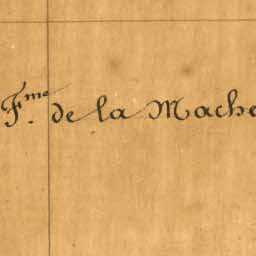 Fme. de la Mache